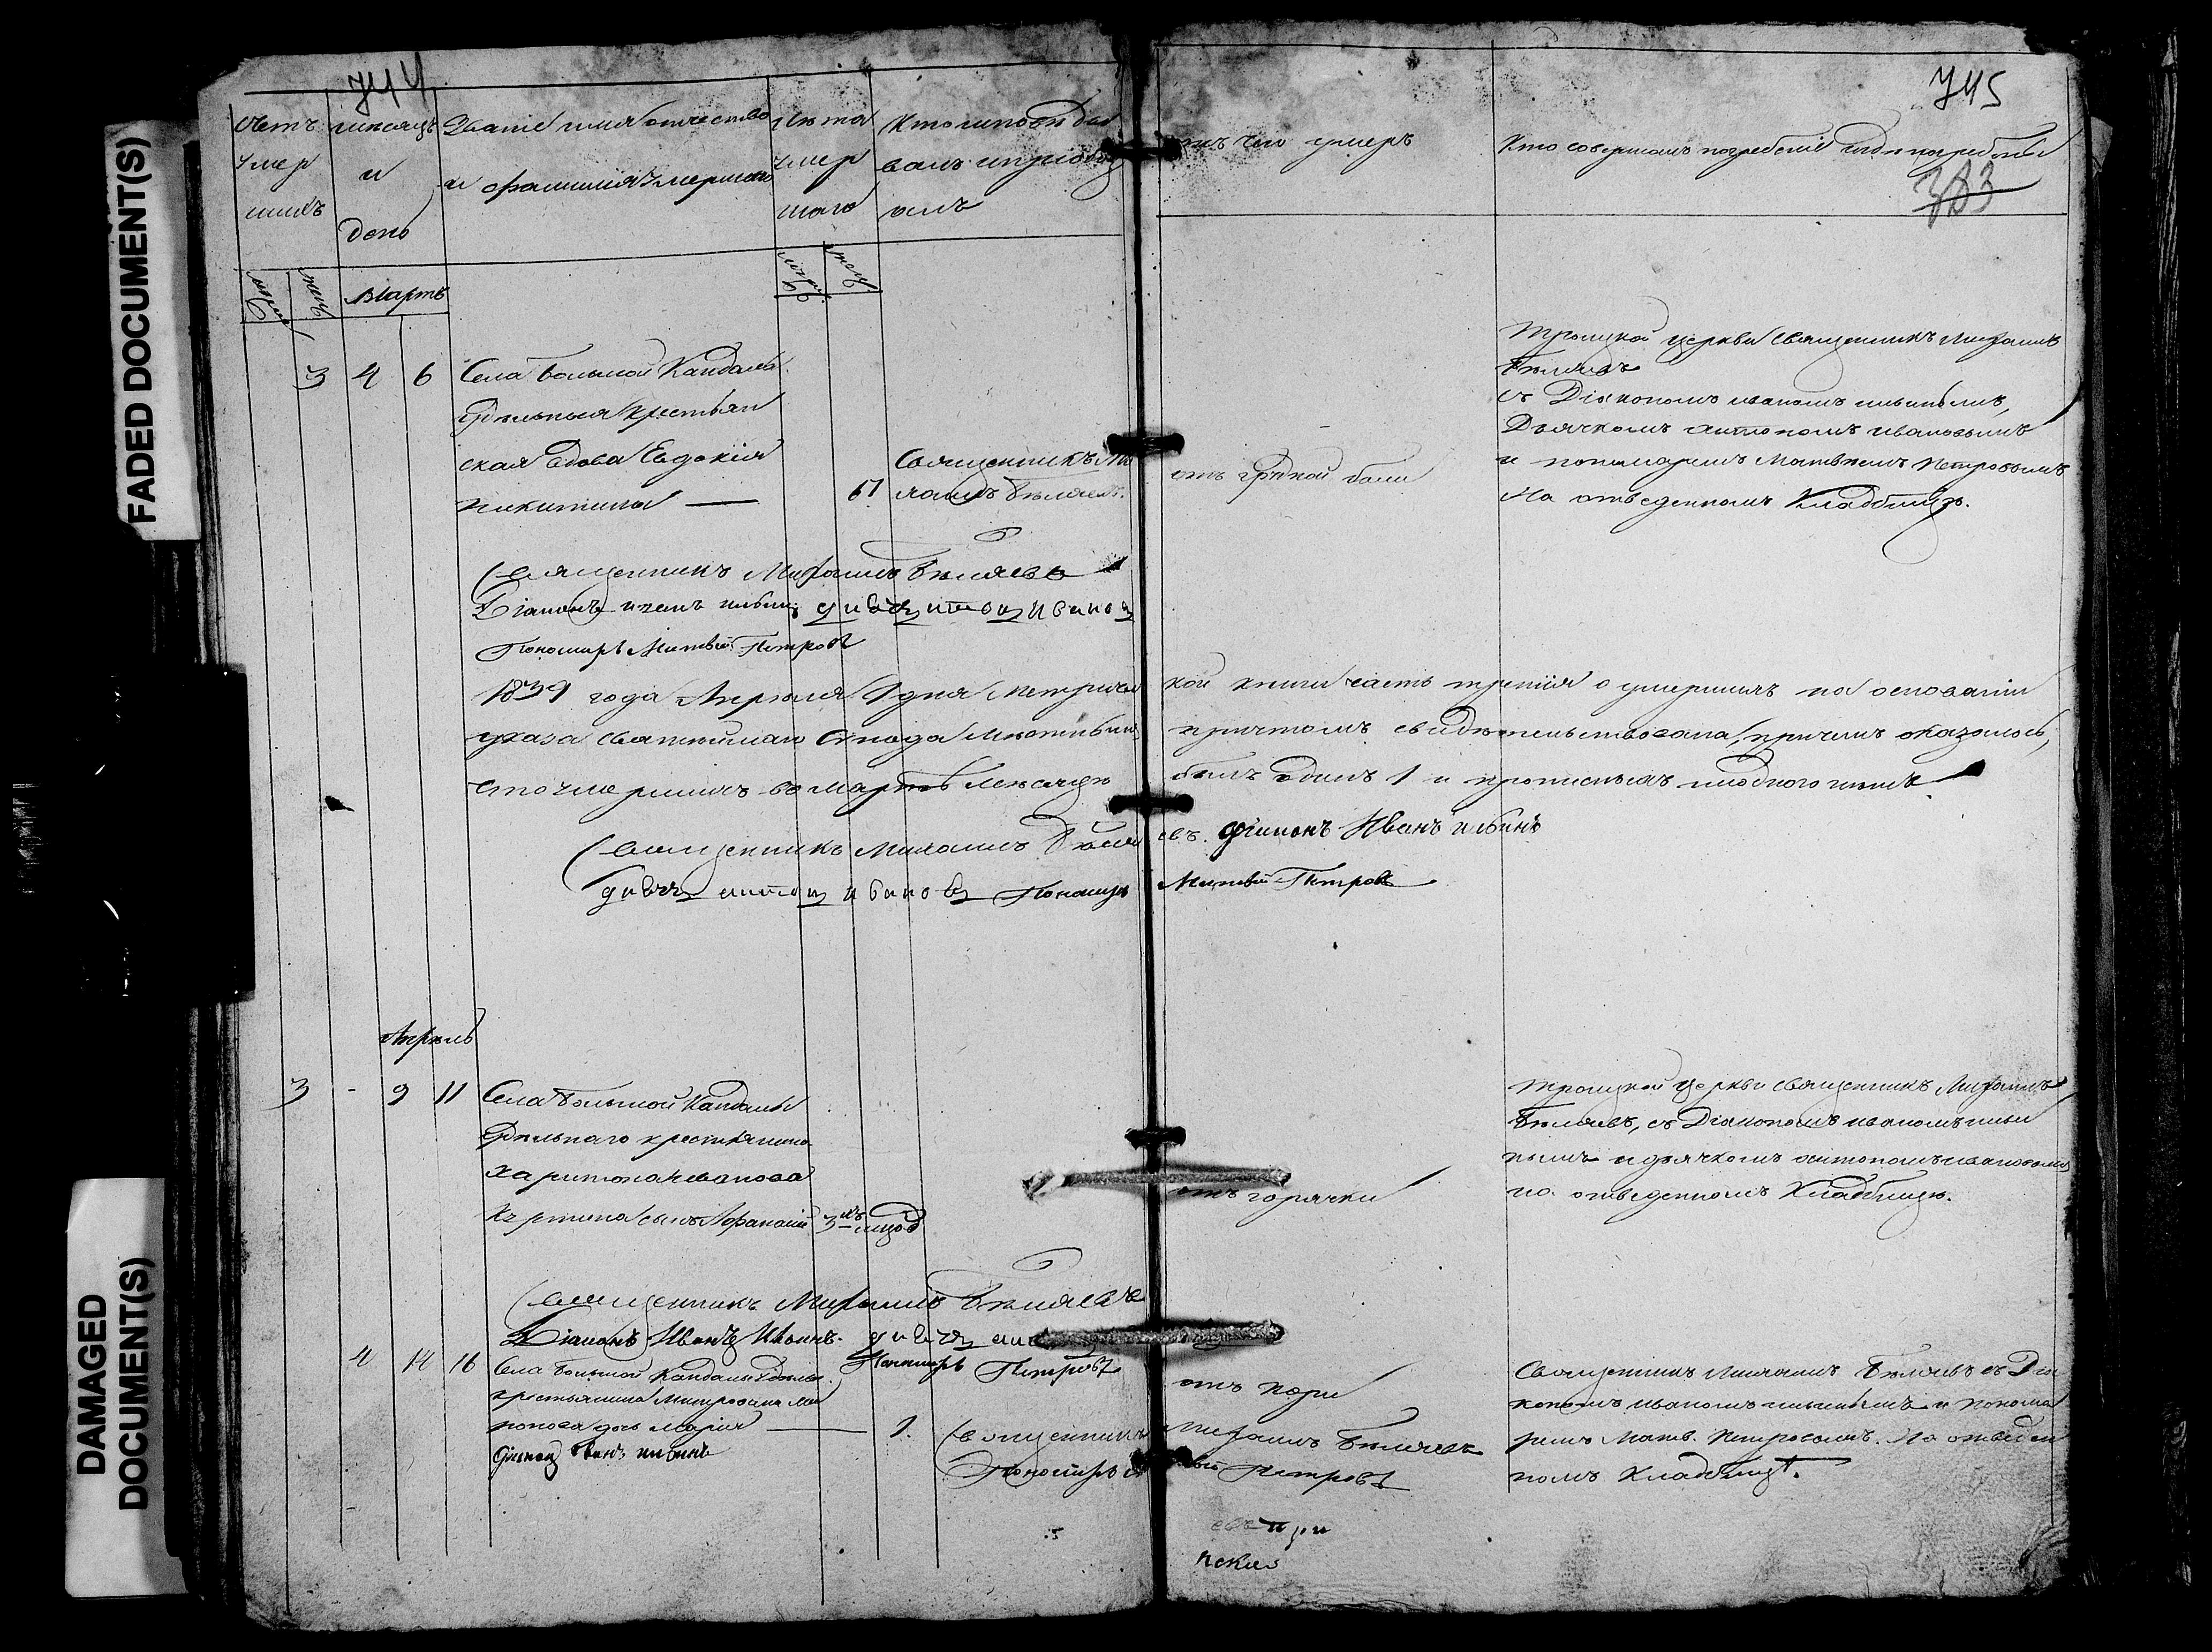 FADED DOCUMENT(S)
DAMAGED DOCUMENT(S)
744
Счетъ умершихъ
мѣсяцъ и день
Званіе имя отчество и фамилія умершаго
лѣта умершаго
Кто исповѣдывалъ и пріобщалъ
отъ чего умеръ
Кто совершалъ погребеніе и гдѣ погребены
745
383
Мартъ
3 4 6 Села Большой Кандалы
Удѣльная крестьян
ская вдова Евдокія
Никитина —
67
Священникъ Ми
хаилъ Бѣляевъ.
отъ грудной боли
Троицкой церкви священникъ Михаилъ
Бѣляевъ
съ Діакономъ Иваномъ Ильинымъ,
Дьячкомъ Антономъ Ивановымъ
и пономаремъ Матвѣемъ Петровымъ
На отведенномъ Кладбищѣ.
Священникъ Михаилъ Бѣляевъ
Діаконъ Иванъ Ильинъ дьячекъ Антонъ Ивановъ
Пономарь Матвѣй Петровъ
1839 года Апреля 1 дня Метричес кой книги часть третія о умершихъ на основаніи
указа Святѣйшаго Синода Мѣстнымъ причтомъ свидѣтельствована, причемъ оказалось,
что умершихъ въ Мартѣ мѣсяцѣ былъ одинъ 1 и прописныхъ ни одного нѣтъ.
Священникъ Михаилъ Бѣляевъ. Діаконъ Иванъ Ильинъ
дьячекъ Антонъ Ивановъ Пономарь Матвѣй Петровъ
Апрѣль
3 - 9 11 Села Большой Кандалы
Удѣльнаго крестьянина
Харитона Иванова
сынъ Афанасій 3хъ мѣсяцовъ
отъ горячки
Троицкой церкви священникъ Михаилъ
Бѣляевъ, съ Діакономъ Иваномъ Ильи
нымъ и дьячкомъ Антономъ Ивановымъ
на отведенномъ Кладбищѣ.
Священникъ Михаилъ Бѣляевъ
Діаконъ Иванъ Ильинъ дьячекъ
Пономарь Петровъ
4 14 16 Села Большой Кандалы Удѣльн.
крестьянина Митрофана
дочь Марія — 1.
отъ кори
Священникъ Михаилъ Бѣляевъ съ Діа
кономъ Иваномъ Ильинымъ и понома
ремъ Матв. Петровымъ. На отведен
номъ Кладбищѣ.
Священникъ Михаилъ Бѣляевъ
Діаконъ Иванъ Ильинъ
Пономарь Петровъ